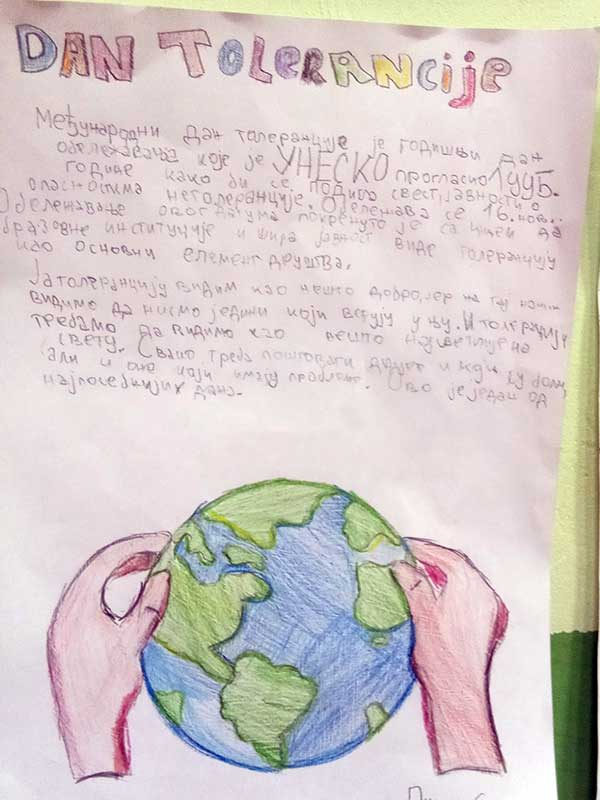 DAN TOLERANCIJE
Међународни дан толеранције је годишњи дан
обележавања које је УНЕСКО прогласио 1995.
године како би се подигла свест јавности о
опасностима нетолеранције. Обележава се 16. нов.
Обележавање овог датума покренуто је са циљем да
образовне институције и шира јавност виде толеранцију
као основни елемент друштва.
Ја толеранцију видим као нешто добро, јер на тај начин
видимо да нисмо једини који верују у њу. И толеранцију
требамо да видимо као нешто најсветије на
свету. Свако треба поштовати друге и који су
али и оне који имају проблем. Ово је један од
најпосебнијих дана.